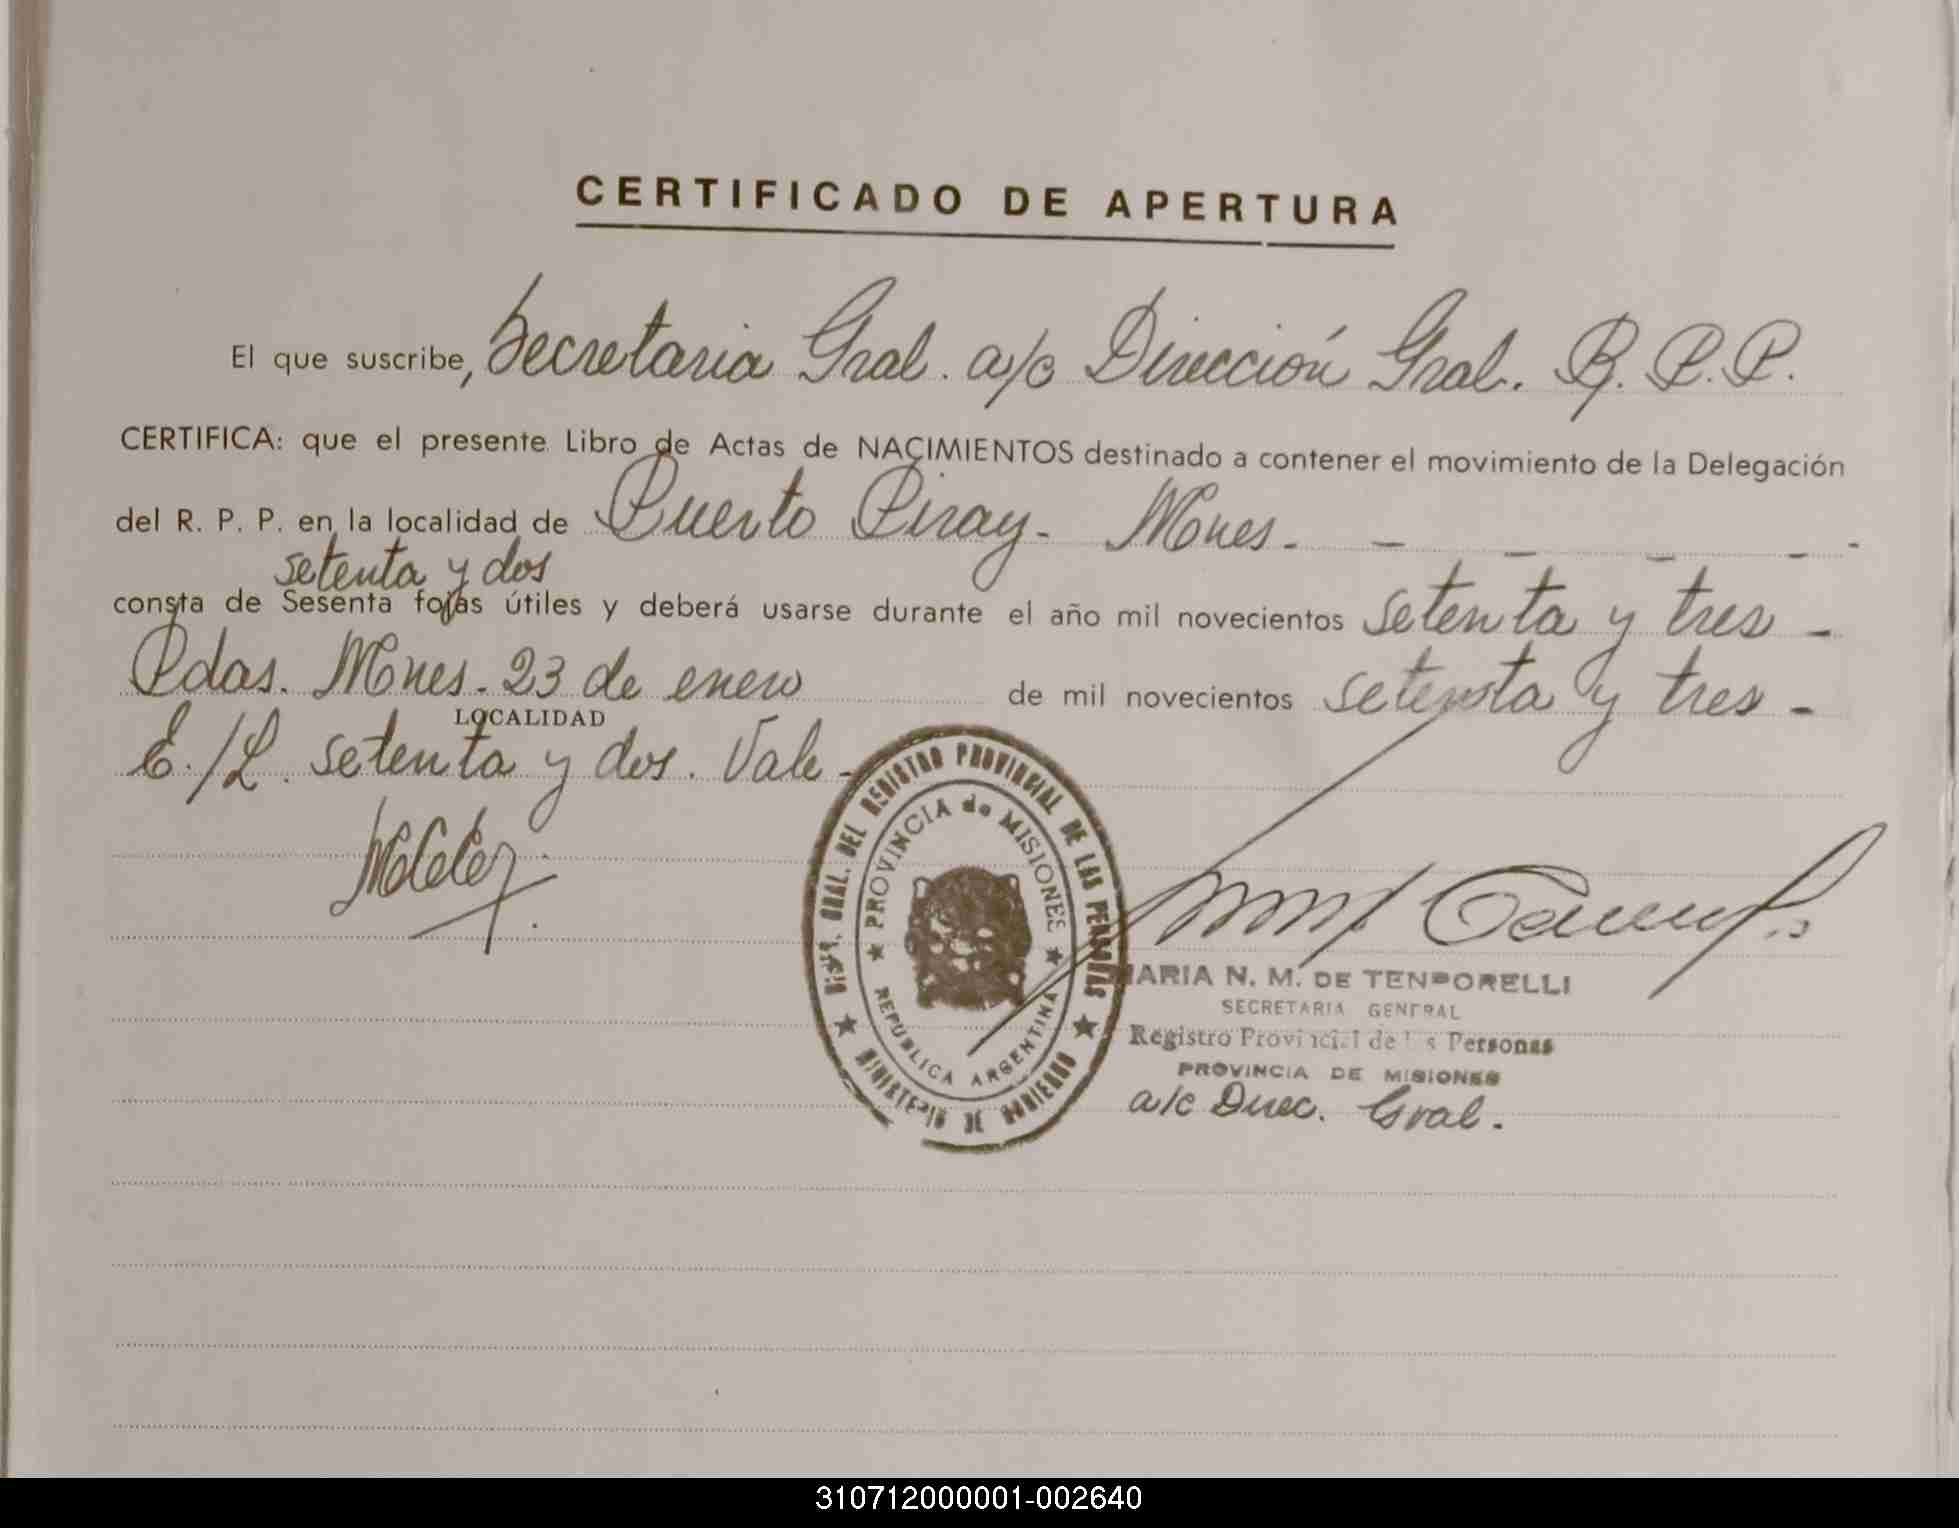 CERTIFICADO DE APERTURA
El que suscribe, Secretaria Gral. a/c Dirección Gral. R. P. P.
CERTIFICA: que el presente Libro de Actas de NACIMIENTOS destinado a contener el movimiento de la Delegación
del R. P. P. en la localidad de Puerto Piray - Mnes. - - - - - -
setenta y dos
consta de Sesenta fojas útiles y deberá usarse durante el año mil novecientos setenta y tres -
Pdas. Mnes. 23 de enero de mil novecientos setenta y tres -
LOCALIDAD
E./L. setenta y dos. Vale -
DEL REGISTRO PROVINCIAL DE LAS PERSONAS
PROVINCIA de MISIONES
REPUBLICA ARGENTINA
MINISTERIO DE GOBIERNO
MARIA N. M. DE TEMPORELLI
SECRETARIA GENERAL
Registro Provincial de las Personas
PROVINCIA DE MISIONES
a/c Direc. Gral.
310712000001-002640